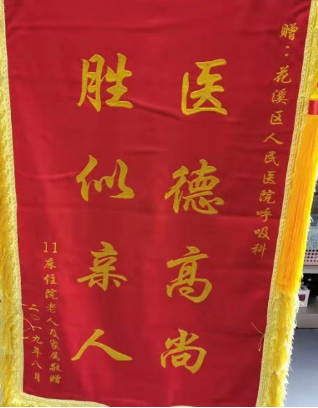 赠：花溪区人民医院呼吸科
医德高尚
胜似亲人
11床住院老人及家属敬赠
二〇一九年八月